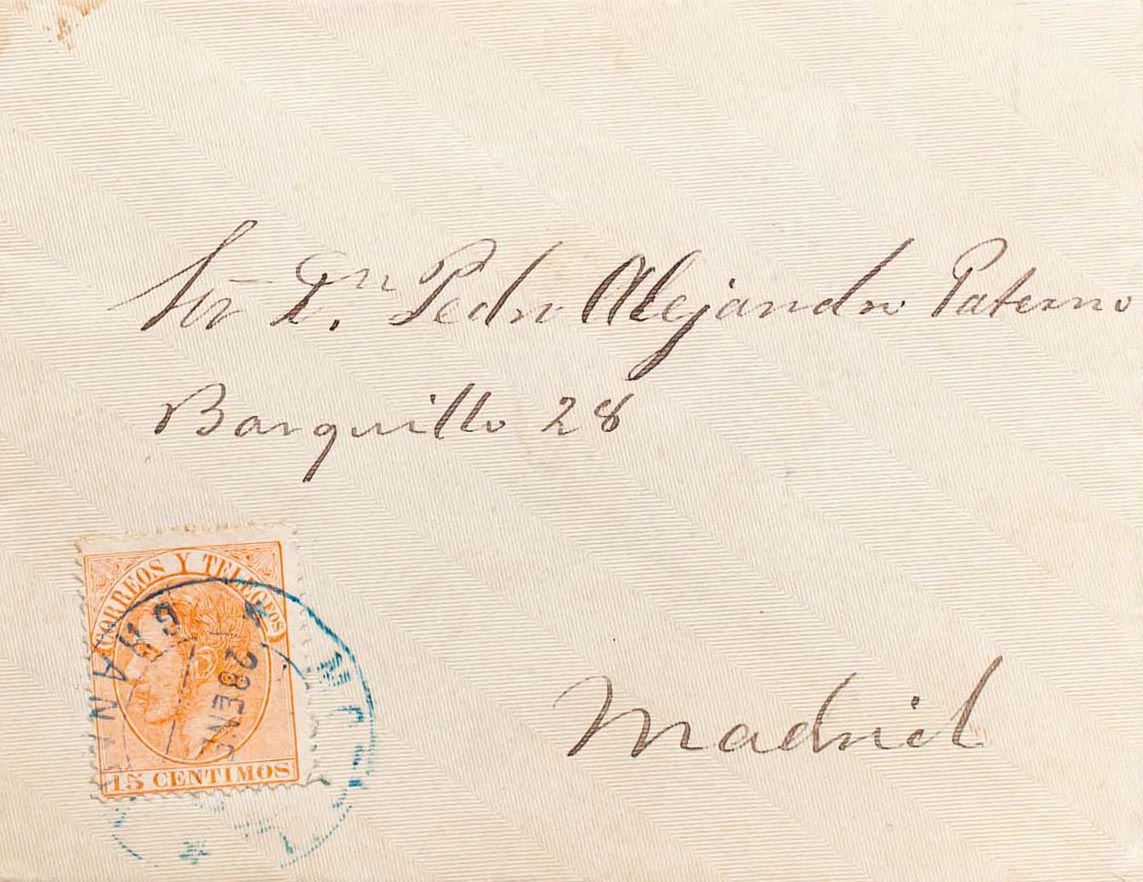 Sor Dn. Pedro Alejandro Paterno
Barquillo 28
Madrid
CORREOS Y TELEGFOS
15 CENTIMOS
28 ENE